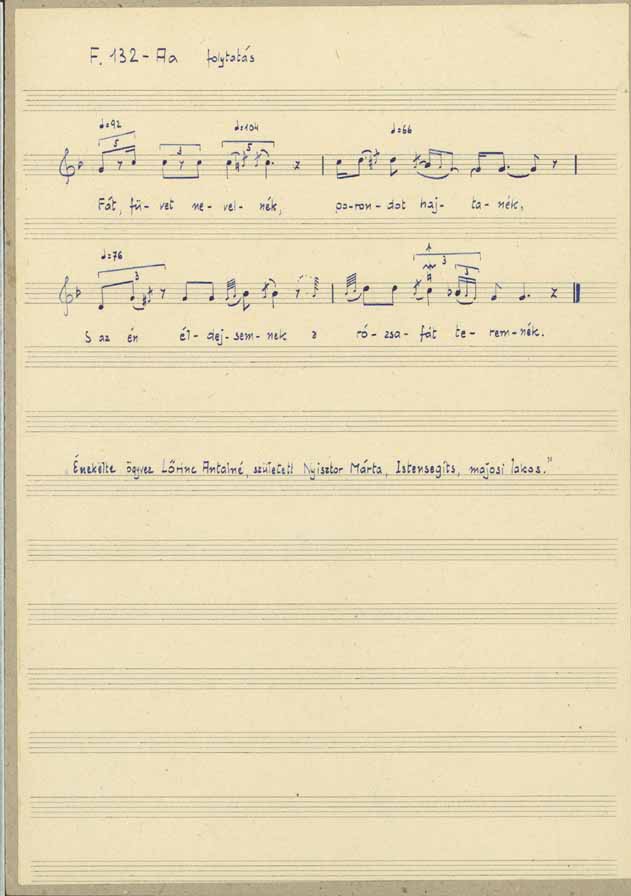 F. 132 - Aa folytatás
♩=92 ♩=104 ♩=66
5 3 5
Fát, fü- vet ne- vel- nék, po- ron- dot haj- ta- nék,
♩=76
3 3 3
S az én él- dëj- sem- nek ró- zsa- fát te- rem- nék.
„Énekëlte özvegy Lőrinc Antalné, született Nyisztor Márta, Istensegíts, majosi lakos."